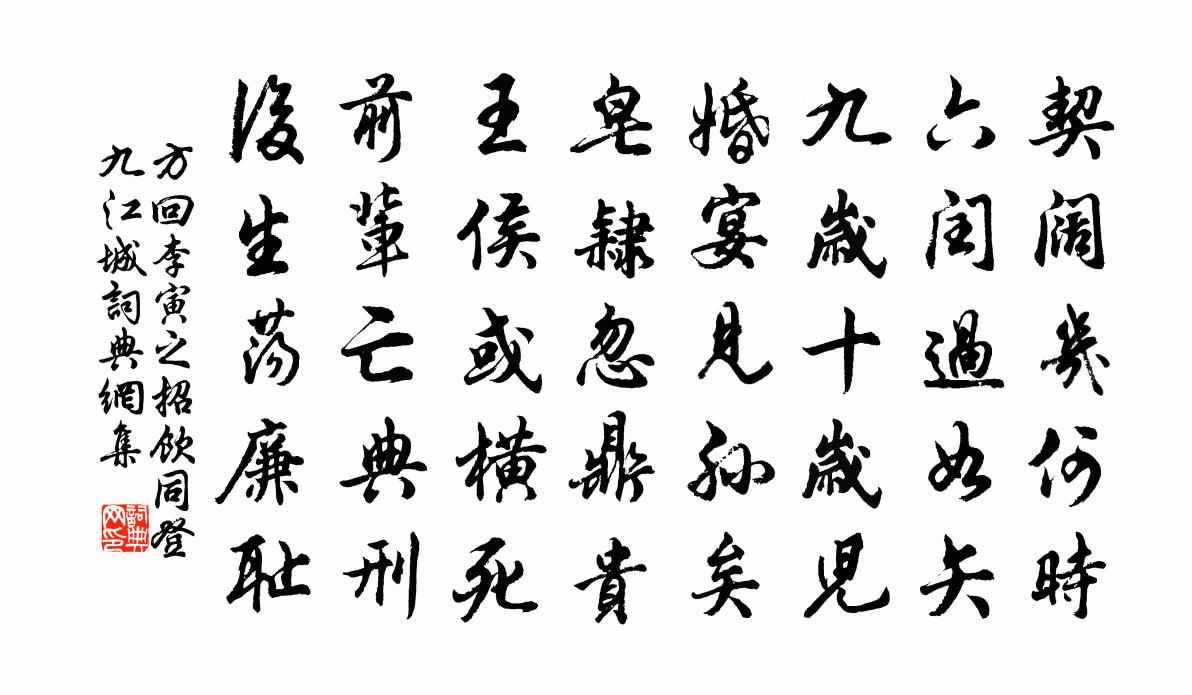 契闊幾何時
六閏過如矢
九歲十歲兒
婚宴見孫矣
皂隸忽鼎貴
王侯或橫死
前輩亡典刑
後生蕩廉恥
方回李寅之招飲同登
九江城詞典網集
詞典網印